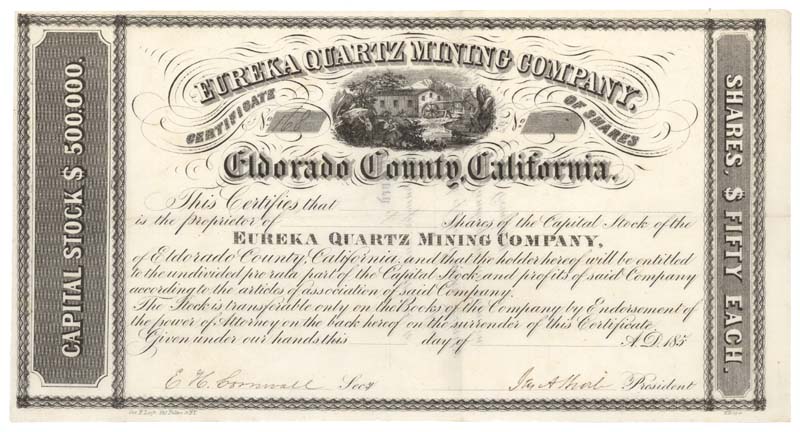 EUREKA QUARTZ MINING COMPANY,
CERTIFICATE OF SHARES
No 168 No
Eldorado County, California.
This Certifies that
is the proprietor of Shares of the Capital Stock of the
EUREKA QUARTZ MINING COMPANY,
of Eldorado County, California, and that the holder hereof will be entitled
to the undivided pro rata part of the Capital Stock and profits of said Company
according to the articles of association of said Company.
The Stock is transferable only on the Books of the Company by Endorsement of
the power of Attorney on the back hereof on the surrender of this Certificate
Given under our hands this day of A.D. 185
E. H. Cornwall Secy President
CAPITAL STOCK $ 500.000.
SHARES, $ FIFTY EACH.